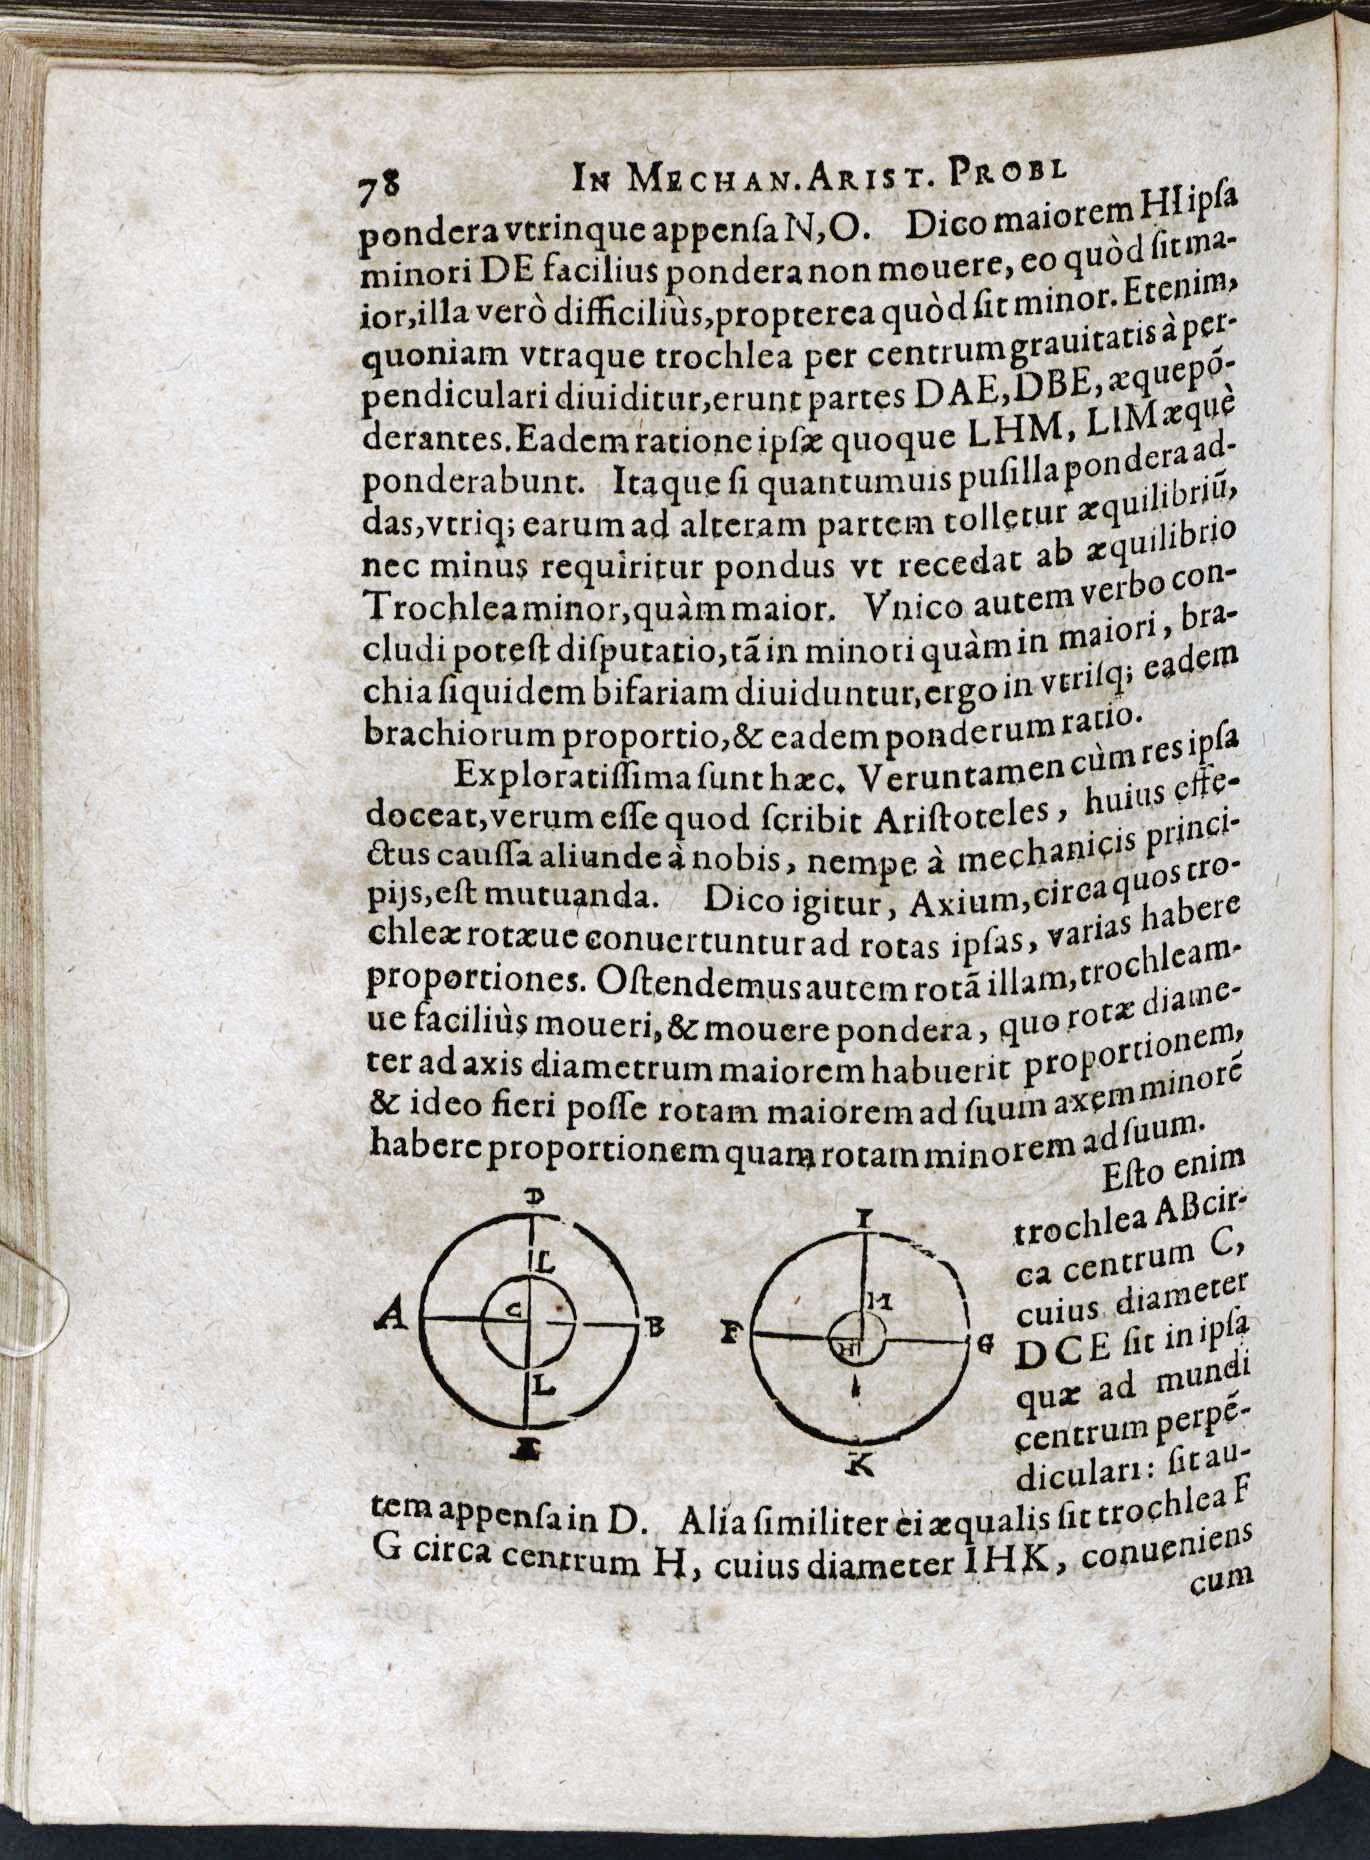 78 IN MECHAN. ARIST. PROBL
pondera vtrinque appenſa N, O. Dico maiorem HI ipſa
minori DE facilius pondera non mouere, eo quòd ſit ma-
ior, illa verò difficiliùs, propterea quòd ſit minor. Etenim,
quoniam vtraque trochlea per centrum grauitatis à per-
pendiculari diuiditur, erunt partes DAE, DBE, æquepõ-
derantes. Eadem ratione ipſæ quoque LHM, LIM æquè
ponderabunt. Itaque ſi quantumuis puſilla pondera ad-
das, vtriq; earum ad alteram partem tolletur æquilibriũ,
nec minus requiritur pondus vt recedat ab æquilibrio
Trochlea minor, quàm maior. Vnico autem verbo con-
cludi poteſt diſputatio, tã in minori quàm in maiori, bra-
chia ſiquidem bifariam diuiduntur, ergo in vtriſq; eadem
brachiorum proportio, & eadem ponderum ratio.
Exploratiſſima ſunt hæc. Veruntamen cùm res ipſa
doceat, verum eſſe quod ſcribit Ariſtoteles, huius effe-
ctus cauſſa aliunde à nobis, nempe à mechanicis princi-
pijs, eſt mutuanda. Dico igitur, Axium, circa quos tro-
chleæ rotæue conuertuntur ad rotas ipſas, varias habere
proportiones. Oſtendemus autem rotã illam, trochleam-
ue faciliùs moueri, & mouere pondera, quo rotæ diame-
ter ad axis diametrum maiorem habuerit proportionem,
& ideo fieri poſſe rotam maiorem ad ſuum axem minorẽ
habere proportionem quam rotam minorem ad ſuum.
Eſto enim
trochlea AB cir-
ca centrum C,
cuius diameter
DCE ſit in ipſa
quæ ad mundi
centrum perpẽ-
diculari: ſit au-
D
L
C
A
B
L
E
I
M
F
G
H
K
tem appenſa in D. Alia ſimiliter ei æqualis ſit trochlea F
G circa centrum H, cuius diameter IHK, conueniens
cum